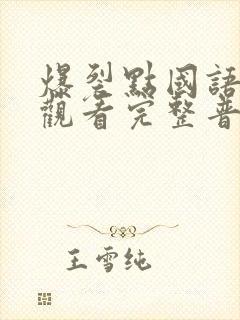 爆裂點國語
觀看完整普
王雪純